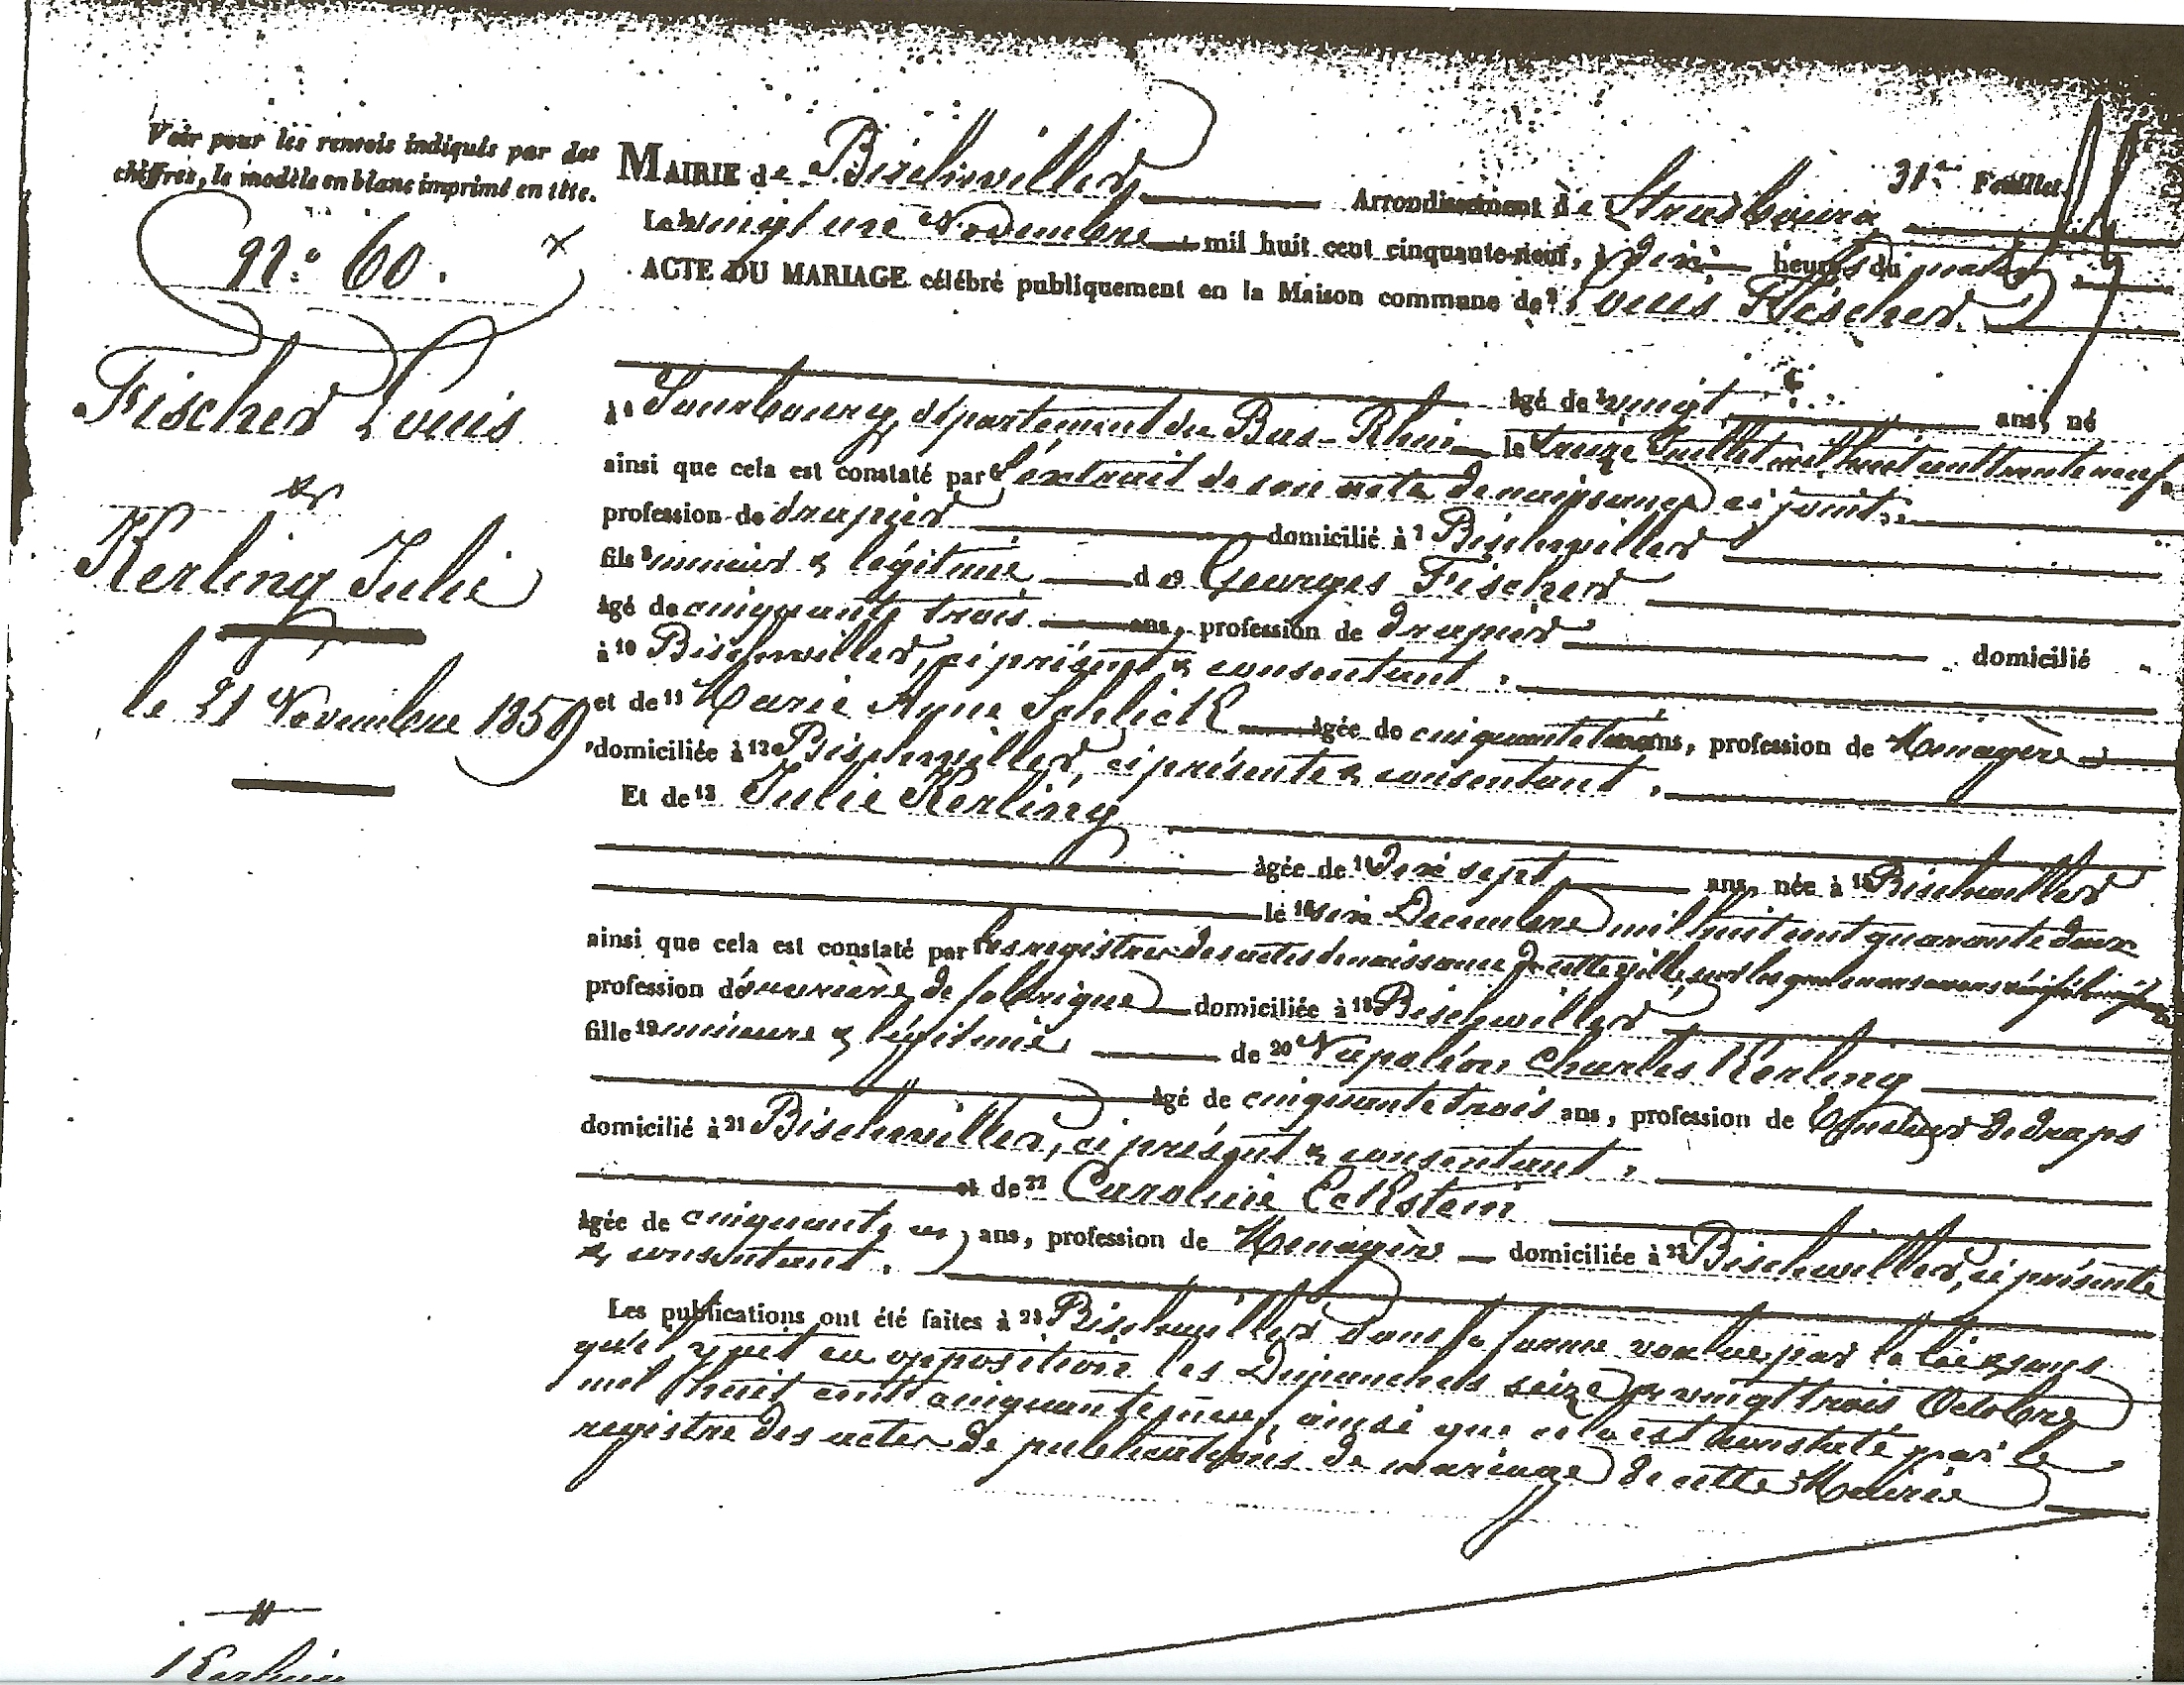 Voir pour les renvois indiqués par des
chiffres, le modèle en blanc imprimé en tête.
N.° 60.
Fischer Louis
&
Kerling Julie
le 21 Novembre 1859
31.me Feuillet
MAIRIE de Bischwiller Arrondissement de Strasbourg
Le vingt un Novembre mil huit cent cinquante-neuf, à dix heures du matin
ACTE DU MARIAGE célébré publiquement en la Maison commune de Louis Fischer
âgé de vingt ans, né
à Sourbourg, département du Bas-Rhin le treize Juillet mil huit cent trente neuf
ainsi que cela est constaté par l'extrait de son acte de naissance ci joint.
profession de drapier domicilié à 7 Bischwiller
fils 8 mineur & légitime de 9 Georges Fischer
âgé de cinquante trois ans, profession de drapier domicilié
à 10 Bischwiller, ci présent & consentant.
et de 11 Marie Agne Schlick âgée de cinquante ans, profession de Ménagère
domiciliée à 12 Bischwiller, ci présente & consentant.
Et de 13 Julie Kerling
âgée de 14 dix sept ans, née à 15 Bischwiller
le 16 six Decembre mil huit cent quarante deux
ainsi que cela est constaté par les registres des actes de naissance de cette ville, sur lesquels nous avons vérifié
profession d'ouvrière de fabrique domiciliée à 18 Bischwiller
fille 19 mineure & légitime de 20 Napoléon Charles Kerling
âgé de cinquante trois ans, profession de de draps
domicilié à 21 Bischwiller, ci présent & consentant.
et de 22 Caroline Eckstein
âgée de cinquante un ans, profession de Ménagère domiciliée à 23 Bischwiller, ci présente
& consentant.
Les publications ont été faites à 24 Bischwiller dans la forme voulue par la loi & sans
qu'il y ait eu opposition les Dimanches seize & vingt trois Octobre
mil huit cent cinquante neuf, ainsi que cela est constaté par le
registre des actes de publications de mariage de cette Mairie